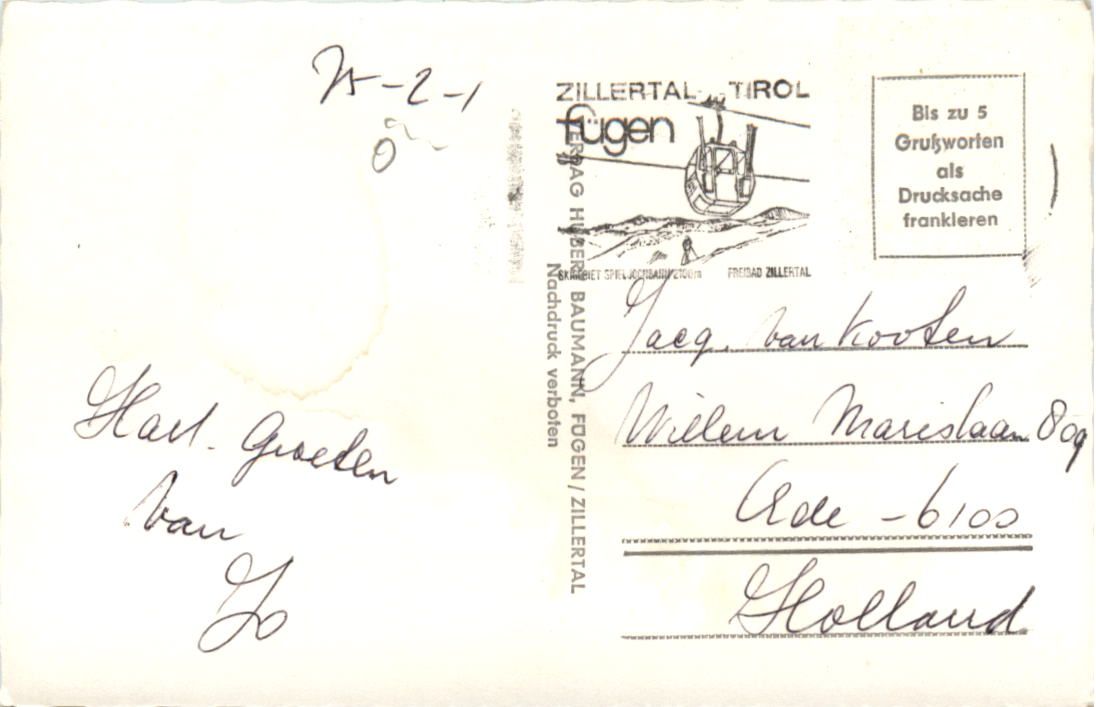 ZILLERTAL - TIROL
fügen
SKIGEBIET SPIELJOCHBAHN 2100m FREIBAD ZILLERTAL
Bis zu 5
Grußworten
als
Drucksache
frankieren
VERLAG HUBERT BAUMANN, FÜGEN / ZILLERTAL
Nachdruck verboten
Hart. Groeten
van
Jo
Jacq. van Kooten
Willem Marislaan 809
Ede - 6100
Holland